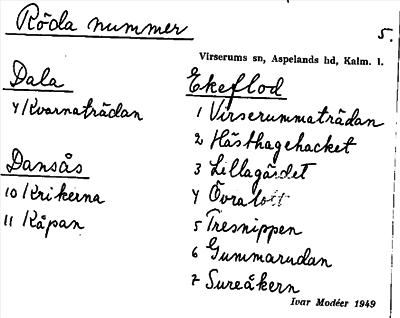 Röda nummer
5.
Virserums sn, Aspelands hd, Kalm. l.
Dala
4/Kvarnaträdan
Dansås
10/Krikerna
11 Kåpan
Ekeflod
1 Virserummaträdan
2 Hästhagehacket
3 Lillagärdet
4 Övralott
5 Tresnippen
6 Gummarudan
7 Sureåkern
Ivar Modéer 1949